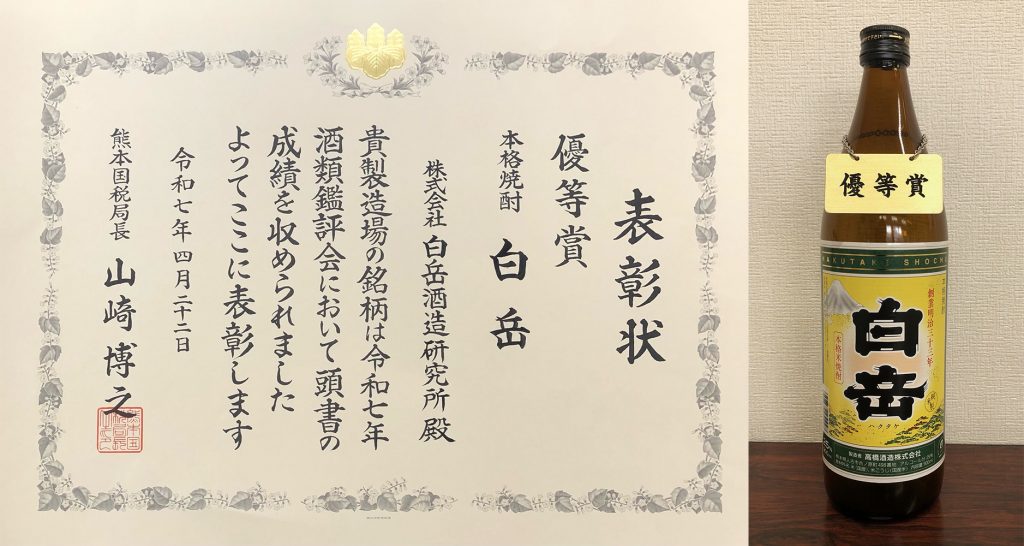 表彰状
優等賞
本格焼酎 白岳
株式会社 白岳酒造研究所 殿
貴製造場の銘柄は令和七年
酒類鑑評会において頭書の
成績を収められました
よってここに表彰します
令和七年四月二十二日
熊本国税局長 山崎博之
優等賞
HAKUTAKE SHOCHU
創業明治三十三年
本格米焼酎
白岳
ハクタケ
製造者 高橋酒造株式会社